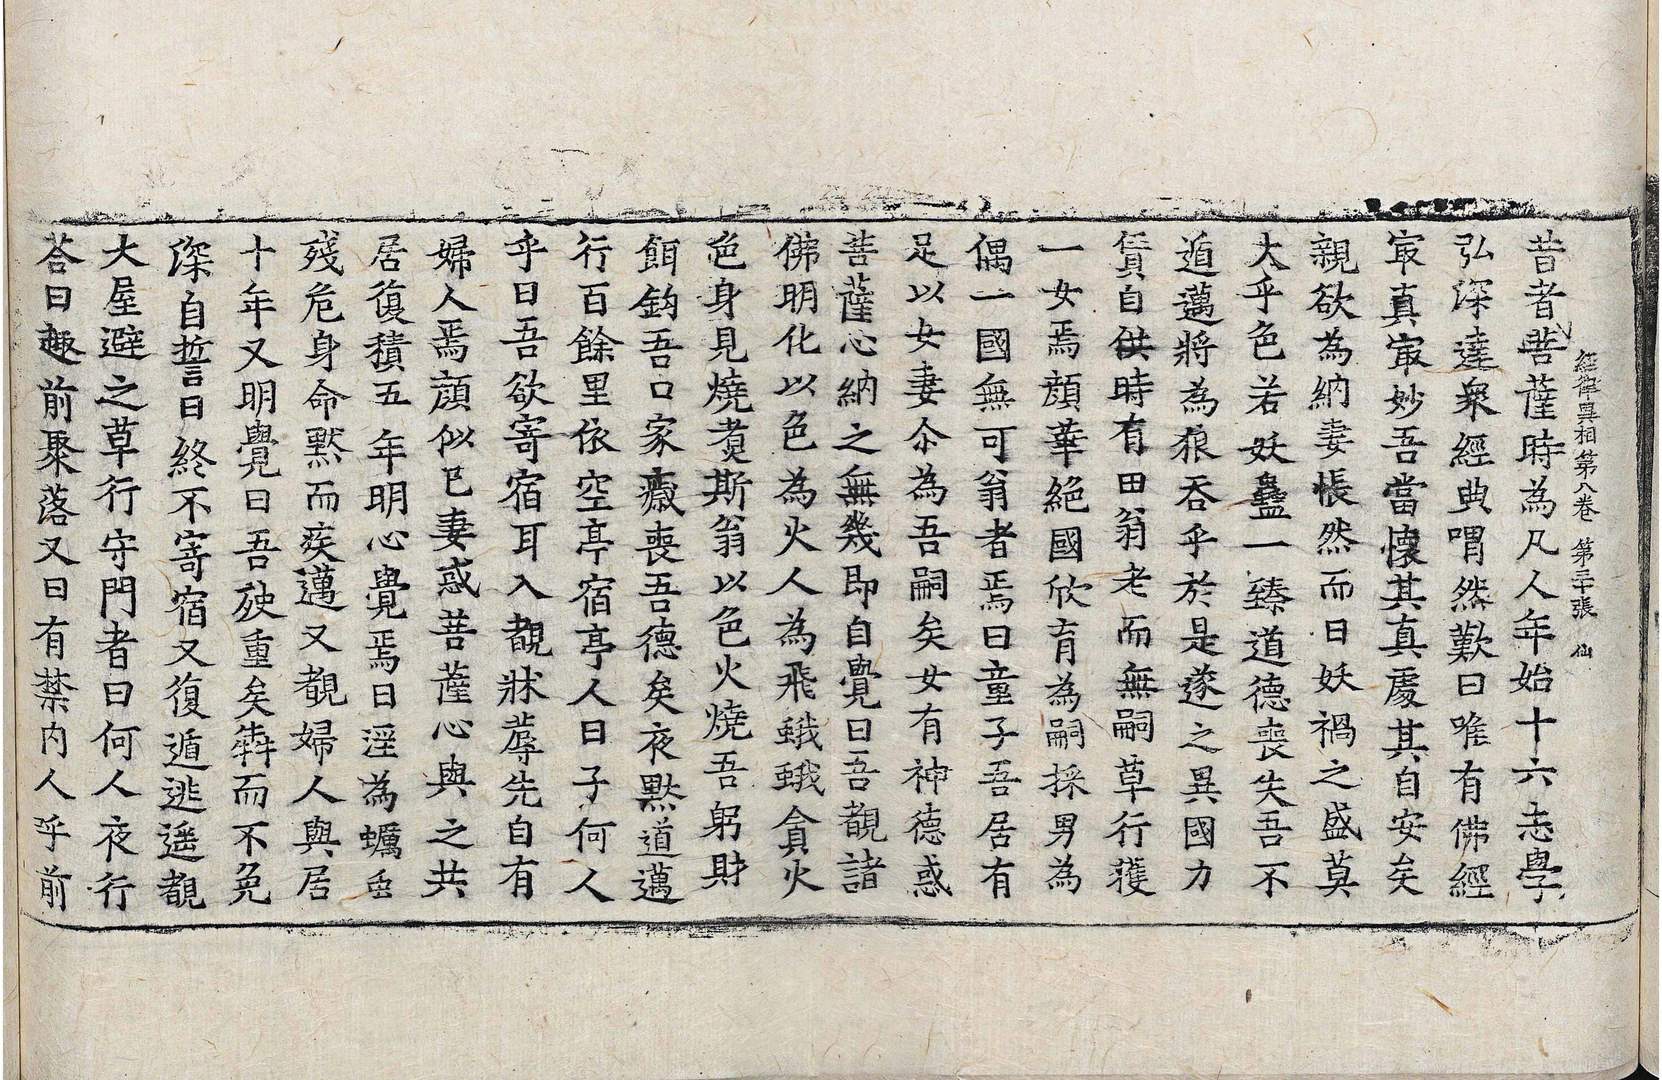 經律異相第八卷 第三十張 仙
昔者菩薩時為凡人年始十六志學
弘深達衆經典喟然歎曰唯有佛經
㝡真㝡妙吾當懷其真處其自安矣
親欲為納妻悵然而曰妖禍之盛莫
大乎色若妖蠱一臻道德喪失吾不
遁邁將為狼吞乎於是遂之異國力
賃自供時有田翁老而無嗣草行獲
一女焉顏華絕國欣育為嗣採男為
偶一國無可翁者焉曰童子吾居有
足以女妻尒為吾嗣矣女有神德惑
菩薩心納之無幾即自覺曰吾覩諸
佛明化以色為火人為飛蛾蛾貪火
色身見燒煑斯翁以色火燒吾躬財
餌鈎吾口家癓喪吾德矣夜默道邁
行百餘里依空亭宿亭人曰子何人
乎曰吾欲寄宿耳入覩牀蓐先自有
婦人焉顏似巳妻惑菩薩心與之共
居復積五年明心覺焉曰淫為蠣虫
殘危身命默而疾邁又覩婦人與居
十年又明覺曰吾殃重矣犇而不免
深自誓曰終不寄宿又復遁逃遥覩
大屋避之草行守門者曰何人夜行
荅曰趣前聚落又曰有禁内人乎前